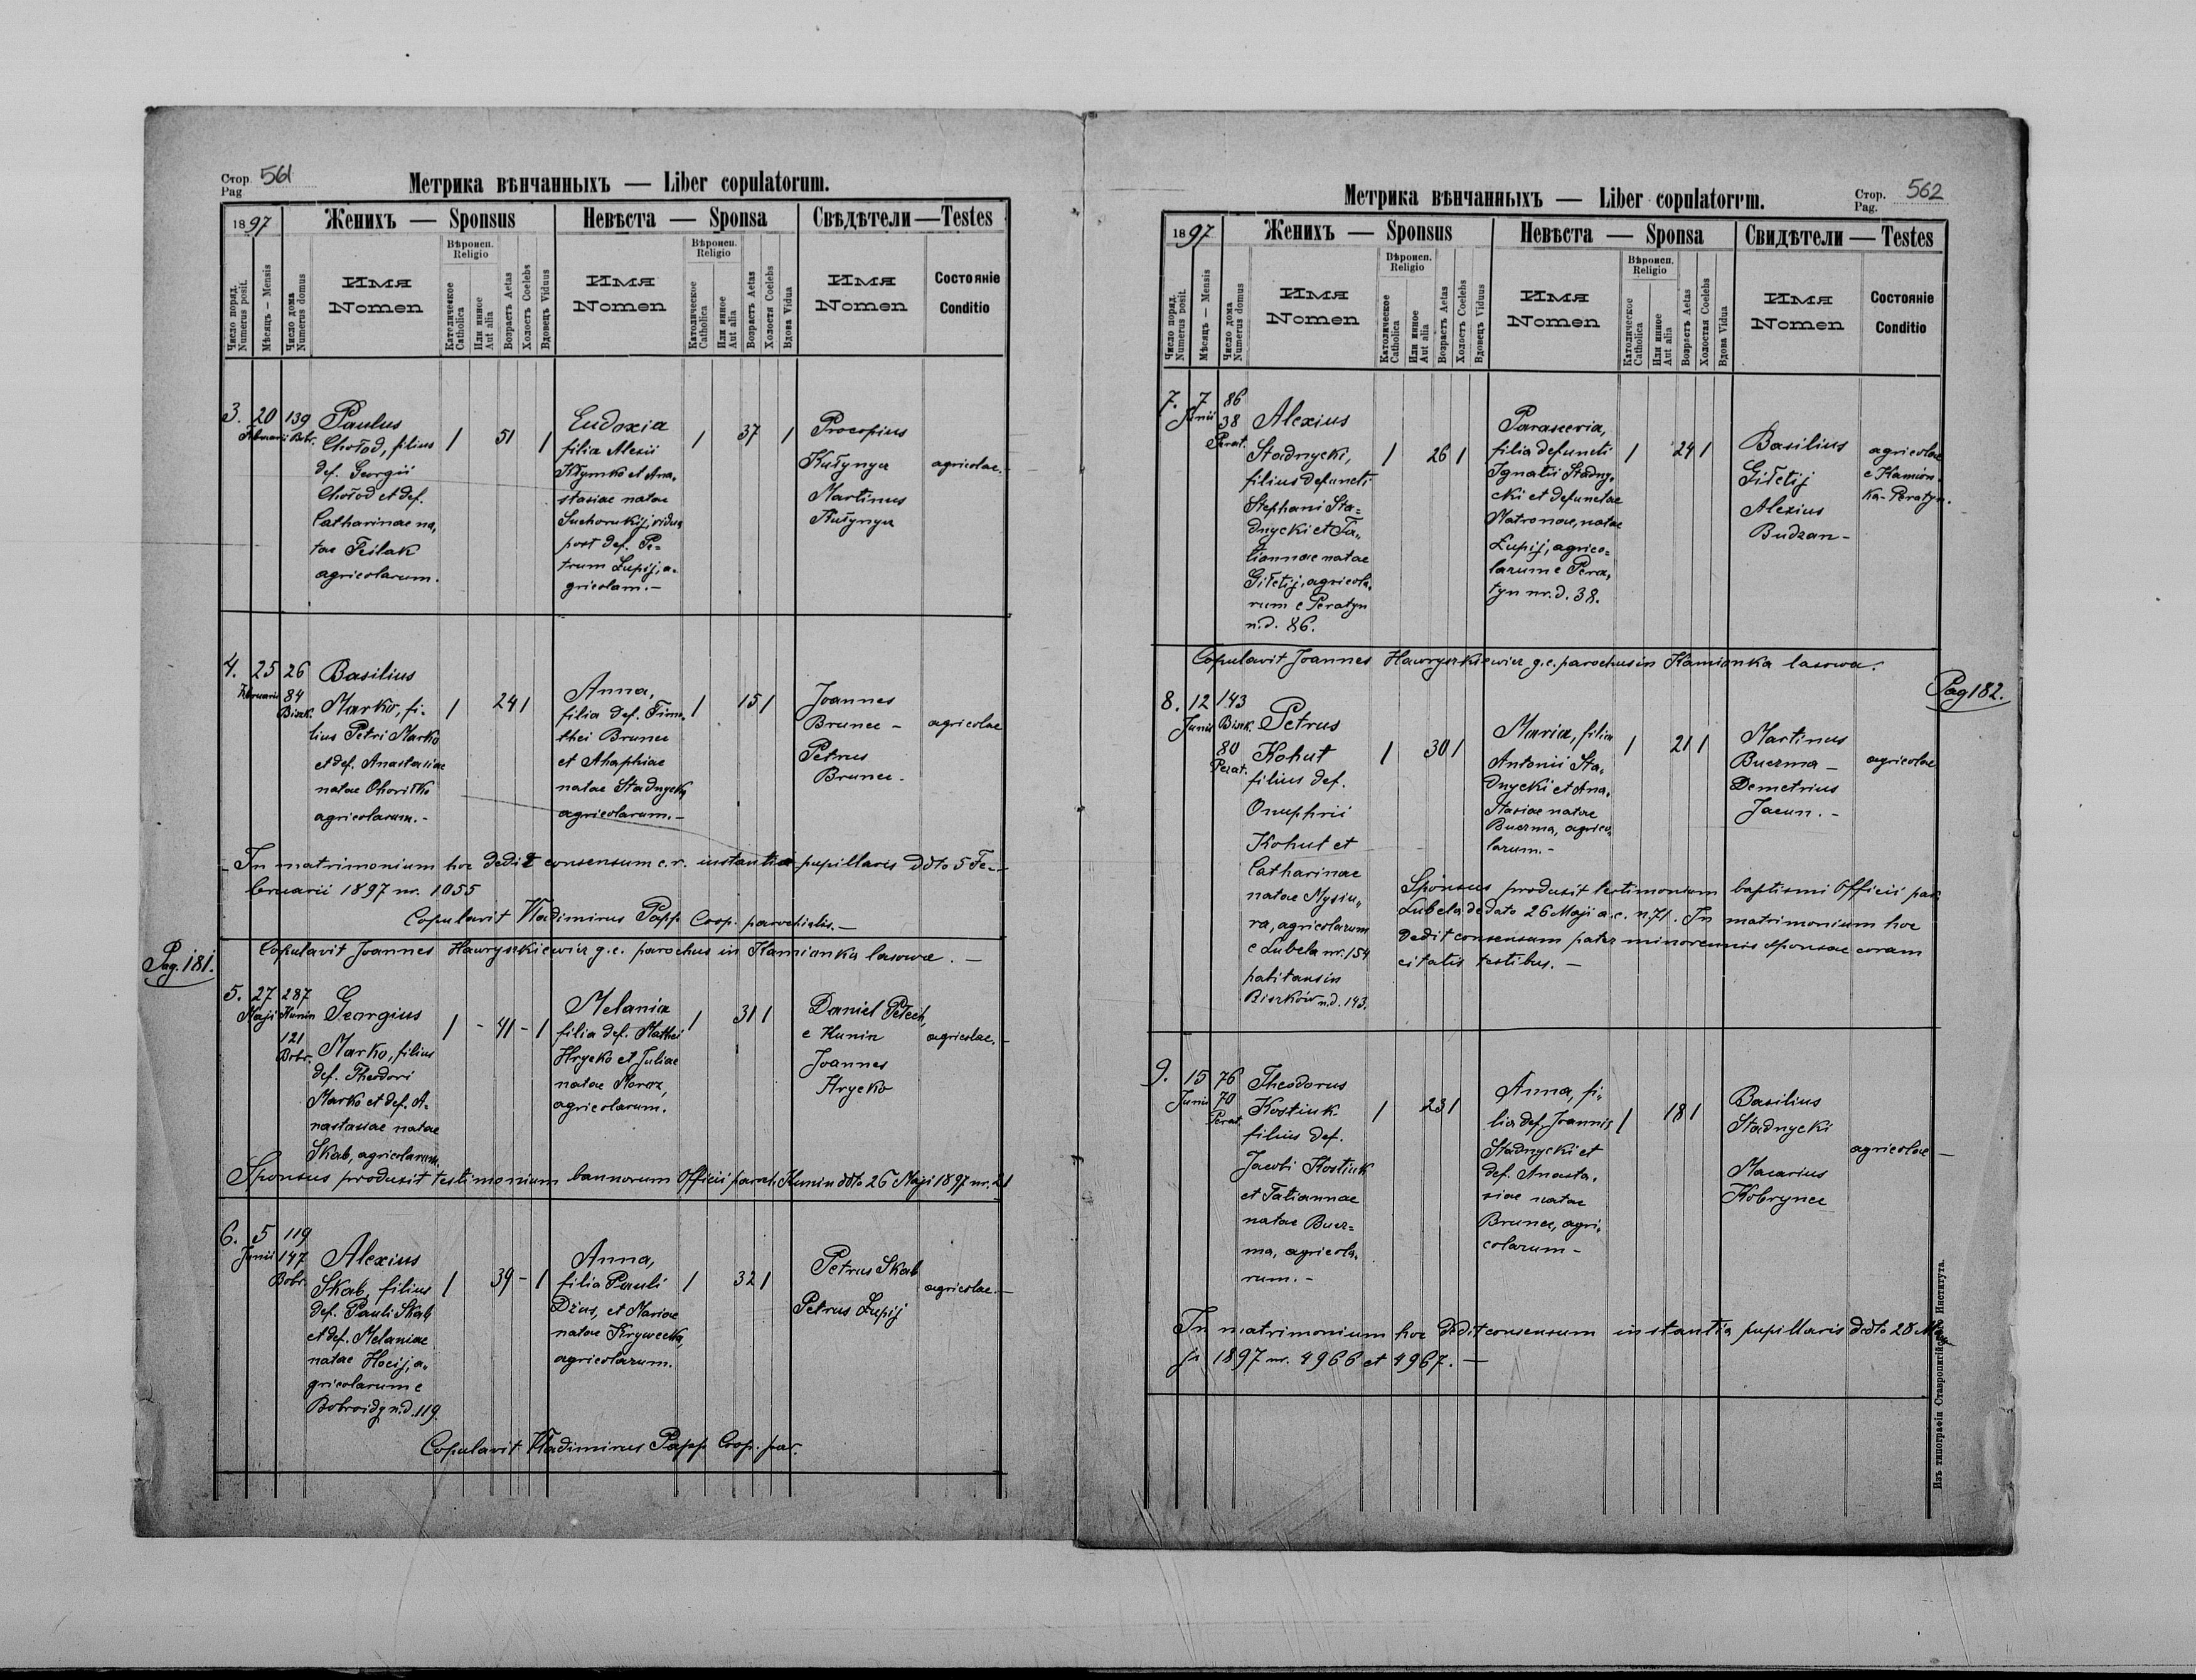 Стор. Pag 561
Метрика вѣнчанныхъ — Liber copulatorum.
1897
Женихъ — Sponsus
Невѣста — Sponsa
Свѣдѣтели — Testes
Число поряд. Numerus posit.
Мѣсяцъ — Mensis
Число дома Numerus domus
Имя Nomen
Вѣроисп. Religio
Католическое Catholica
Или инное Aut alia
Возрастъ Aetas
Холостъ Coelebs
Вдовецъ Viduus
Имя Nomen
Вѣроисп. Religio
Католическое Catholica
Или инное Aut alia
Возрастъ Aetas
Холостя Coelebs
Вдова Vidua
Имя Nomen
Состояніе Conditio
3. 20 Februarii 139 Bobr.
Paulus
Chołod, filius
def. Georgii
Chołod et def.
Catharinae na„
tae
agricolarum.
1 51 1
Eudoxia
filia Alexii
Kłymko et Ana„
stasiae natae
Suchorukij, vidua
post def. Pe=
trum Łupij, a=
gricolam.—
1 37 1
Procopius
Kułynycz
Martinus
Kułynycz
agricolae.—
4. 25 Februarii 26 84 Biszk.
Basilius
Marko, fi=
lius Petri Marko
et def. Anastasiae
natae
agricolarum.-
1 24 1
Anna,
filia def. Timo„
thei Brunec
et Ahaphiae
natae Stadnycky
agricolarum.—
1 15 1
Joannes
Brunec –
Petrus
Brunec.
agricolae
In matrimonium hoc dedit consensum c.r. instantia pupillaris ddto 5 Fe—
bruarii 1897 nr. 1055
Copulavit Wladimirus Papp Coop. parochialis.—
Copulavit Joannes Hawryszkiewicz g.c. parochus in Kamianka lasowa. —
Pag. 181.
5. 27 Maji 287 Kunin 121 Bobr.
Georgius
Marko, filius
def. Theodori
Marko et def. A=
nastasiae natae
Skab, agricolarum.
1 - 41 - 1
Melania
filia def. Mathei
Hrycko et Juliae
natae Moroz,
agricolarum.
1 31 1
Daniel Petech,
e Kunin
Joannes
Hrycko
agricolae.—
Sponsus produxit testimonium bannorum Officii paroch. Kunin ddto 26 Maji 1897 nr. 21
6. 5 Junii 119 147 Bobr.
Alexius
Skab, filius
def. Pauli Skab
et def. Melaniae
natae Hocij, a=
gricolarum e
Bobroidy n.d. 119.
1 39 - 1
Anna,
filia Pauli
Dżus, et Mariae
natae
agricolarum.
1 32 1
Petrus Skab
Petrus Łupij
agricolae.—
Copulavit Wladimirus Papp Coop. par.
Метрика вѣнчанныхъ — Liber copulatorrm.
Стор. Pag. 562
1897
Женихъ — Sponsus
Невѣста — Sponsa
Свидѣтели — Testes
Число поряд. Numerus posit.
Мѣсяцъ — Mensis
Число дома Numerus domus
Имя Nomen
Вѣроисп. Religio
Католическое Catholica
Или инное Aut alia
Возрастъ Aetas
Холостъ Coelebs
Вдовецъ Viduus
Имя Nomen
Вѣроисп. Religio
Католическое Catholica
Или инное Aut alia
Возрастъ Aetas
Холостая Coelebs
Вдова Vidua
Имя Nomen
Состояніе Conditio
7. 7 Junii 86 38 Perat.
Alexius
Stadnycki,
filius defuncti
Stephani Sta=
dnycki et Ta„
tiannae natae
Giłetij, agricola„
rum e Peratyn
n.d. 86.
1 26 1
Parascevia,
filia defuncti
Ignatii Stadny„
cki et defunctae
Matronae, natae
Łupij, agrico=
larum e Pera„
tyn nr. d. 38.
1 24 1
Basilius
Giłetij
Alexius
Budzan –
agricolae
e Kamion
ka-Peratyn.
Copulavit Joannes Hawryszkiewicz g.c. parochus in Kamianka lasowa.
Pag 182.
8. 12 Junii 143 Biszk. 80 Perat.
Petrus
Kohut
filius def.
Onuphrii
Kohut et
Catharinae
natae Mysiu„
ra, agricolarum
e Lubela nr. 154
habitans in
Biszków n.d. 143.
1 30 1
Maria, filia
Antonii Sta„
dnycki et Ana„
stasiae natae
Buczma, agrico„
larum.—
1 21 1
Martinus
Buczma –
Demetrius
Jacun. –
agricolae
Sponsus produxit testimonium baptismi Officii par.
Lubela de dato 26 Maji a.c. n. 71. In matrimonium hoc
dedit consensum pater minorennis sponsae coram
citatis testibus. —
9. 15 Junii 76 70 Perat.
Theodorus
Kostiuk
filius def.
Jacobi Kostiuk
et Tatiannae
natae Bucz=
ma, agricola„
rum.-
1 23 1
Anna, fi„
lia def. Joannis
Stadnycki et
def. Anasta„
siae natae
Brunec, agri„
colarum –
1 18 1
Basilius
Stadnycki
Macarius
Kobrynec
agricolae —
In matrimonium hoc dedit consensum instantia pupillaris ddto 28 Ma
ji 1897 nr. 4966 et 4967. —
Изъ типографіи Ставропигійского Института.